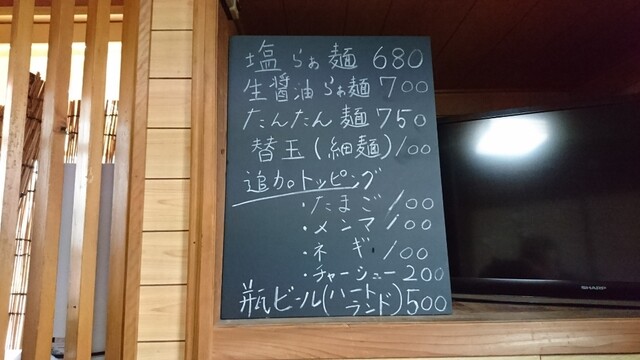 塩らぁ麺 680
生醤油らぁ麺 700
たんたん麺 750
替玉(細麺)100
追加トッピング
・たまご 100
・メンマ 100
・ネギ 100
・チャーシュー 200
瓶ビール(ハートランド)500
SHARP